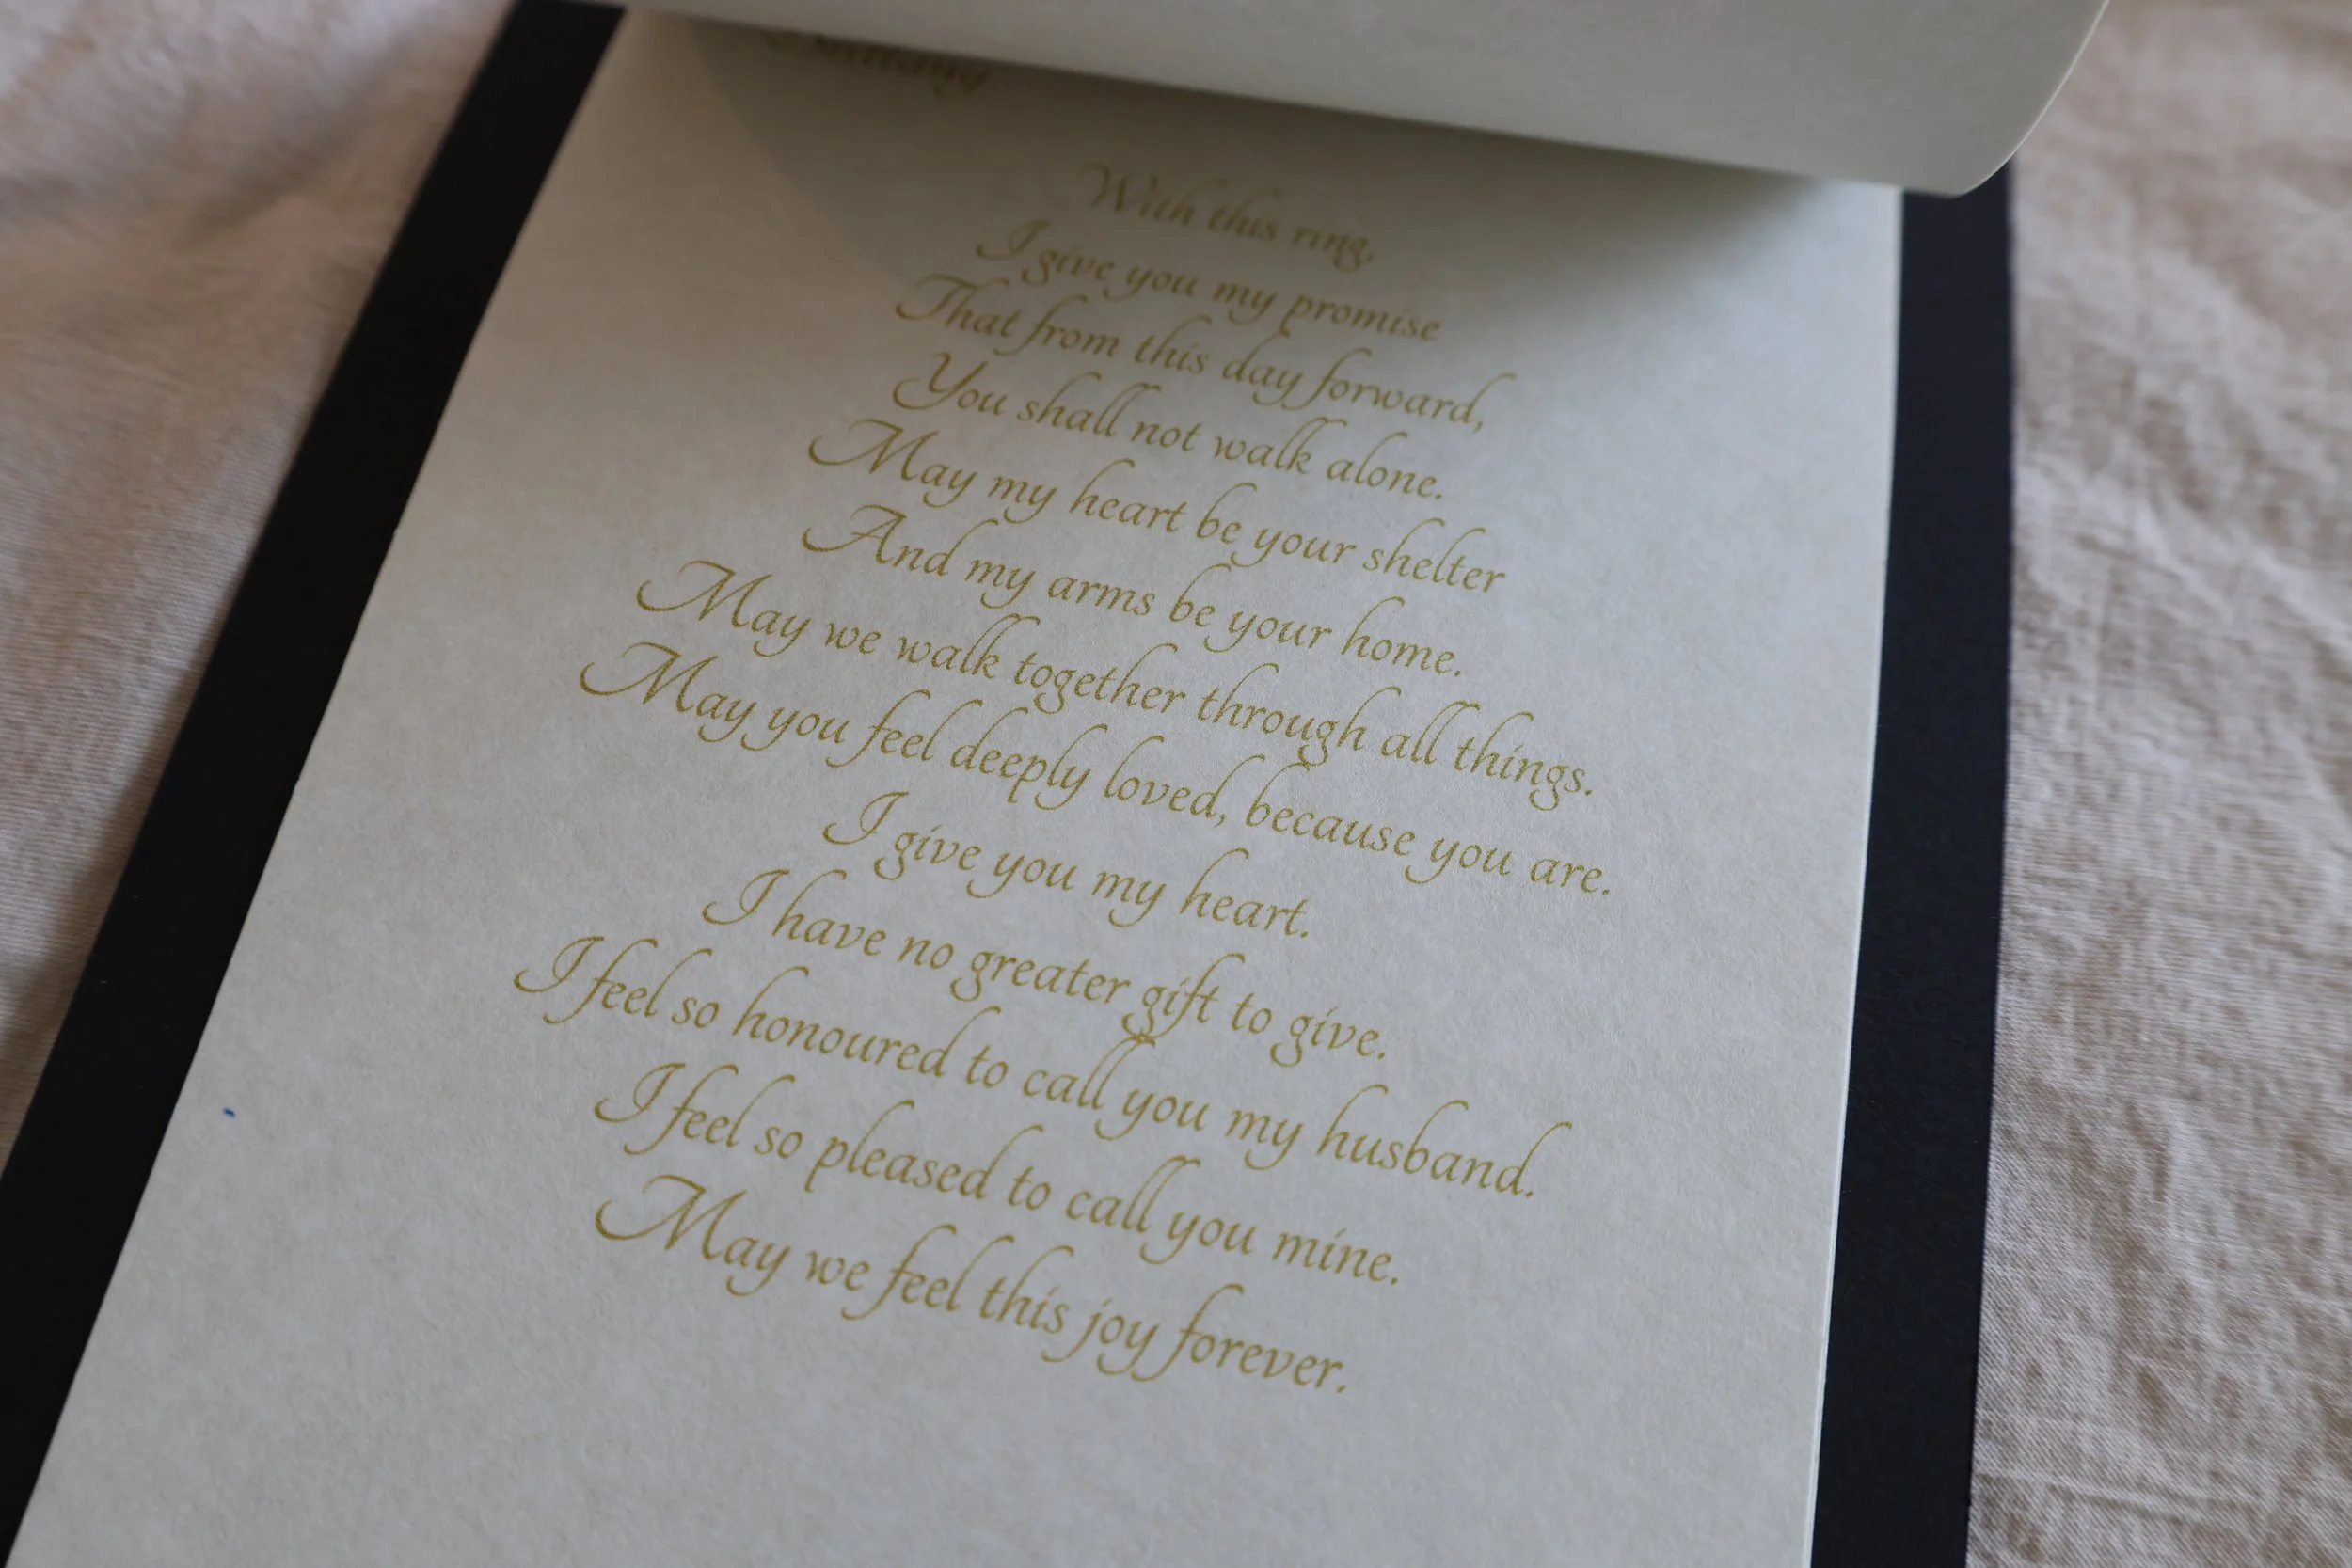 With this ring,
I give you my promise
That from this day forward,
You shall not walk alone.
May my heart be your shelter
And my arms be your home.
May we walk together through all things.
May you feel deeply loved, because you are.
I give you my heart.
I have no greater gift to give.
I feel so honoured to call you my husband.
I feel so pleased to call you mine.
May we feel this joy forever.